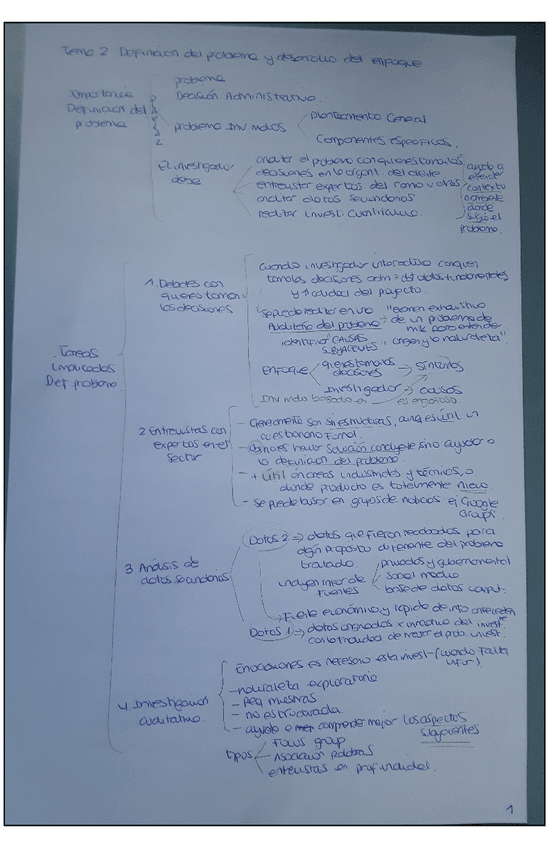 Tema 2 Definición del problema y desarrollo del enfoque
Importancia
Definición del
problema
problema
Decisión Administrativa.
problema Inv. mdos
Planteamiento General
Componentes Específicos.
El investigador
debe
analizar el problema con quienes toman las
decisiones en la organ. del cliente
entrevistar expertos del ramo u otros
analizar datos secundarios
realizar invest. cualitativa.
ayuda a
entender
contexto
ambiente
donde
surgió el
problema.
Tareas
implicadas
Def problema.
1. Debates con
quienes toman
las decisiones
Cuando investigador interactúa con quien
toma las decisiones adm
datos fundamentales
y calidad del proyecto.
Se puede realizar en una
Auditoría del problema
"examen exhaustivo
de un problema de
mk para entender
origen y naturaleza".
identificar CAUSAS
SUBYACENTES
Enfoque
quienes toman las
decisiones → síntomas
Investigador → causas
Inv mdo basada en
es engañoso.
2. Entrevistas con
expertos en el
sector
- Generalmente son sin estructuras, aunq es útil un
cuestionario formal.
- Obj no es hallar solución concluyente sino ayudar a
la definición del problema
- + útil en áreas industriales y técnicas, o
donde producto es totalmente nuevo.
- Se puede buscar en grupos de noticias ej Google
Groups
3. Análisis de
datos secundarios
Datos 2 ⇒ datos que fueron recabados para
algún propósito diferente del problema
tratado.
incluyen infor de
fuentes
privadas y gubernamental
base de datos comput.
→ Fuente económica y rápida de info antecedentes
Datos 1 ⇒ datos originados x iniciativa del invest
con la finalidad de resolver el prob. invest.
4. Investigación
cualitativa.
En ocasiones es necesario esta invest (cuando falta
infor)
- naturaleza exploratoria
- peq muestras
- no estructurada
- ayuda a comprender mejor los aspectos
subyacentes
tipos
Focus group
Asociación palabras
entrevistas en profundidad.
1